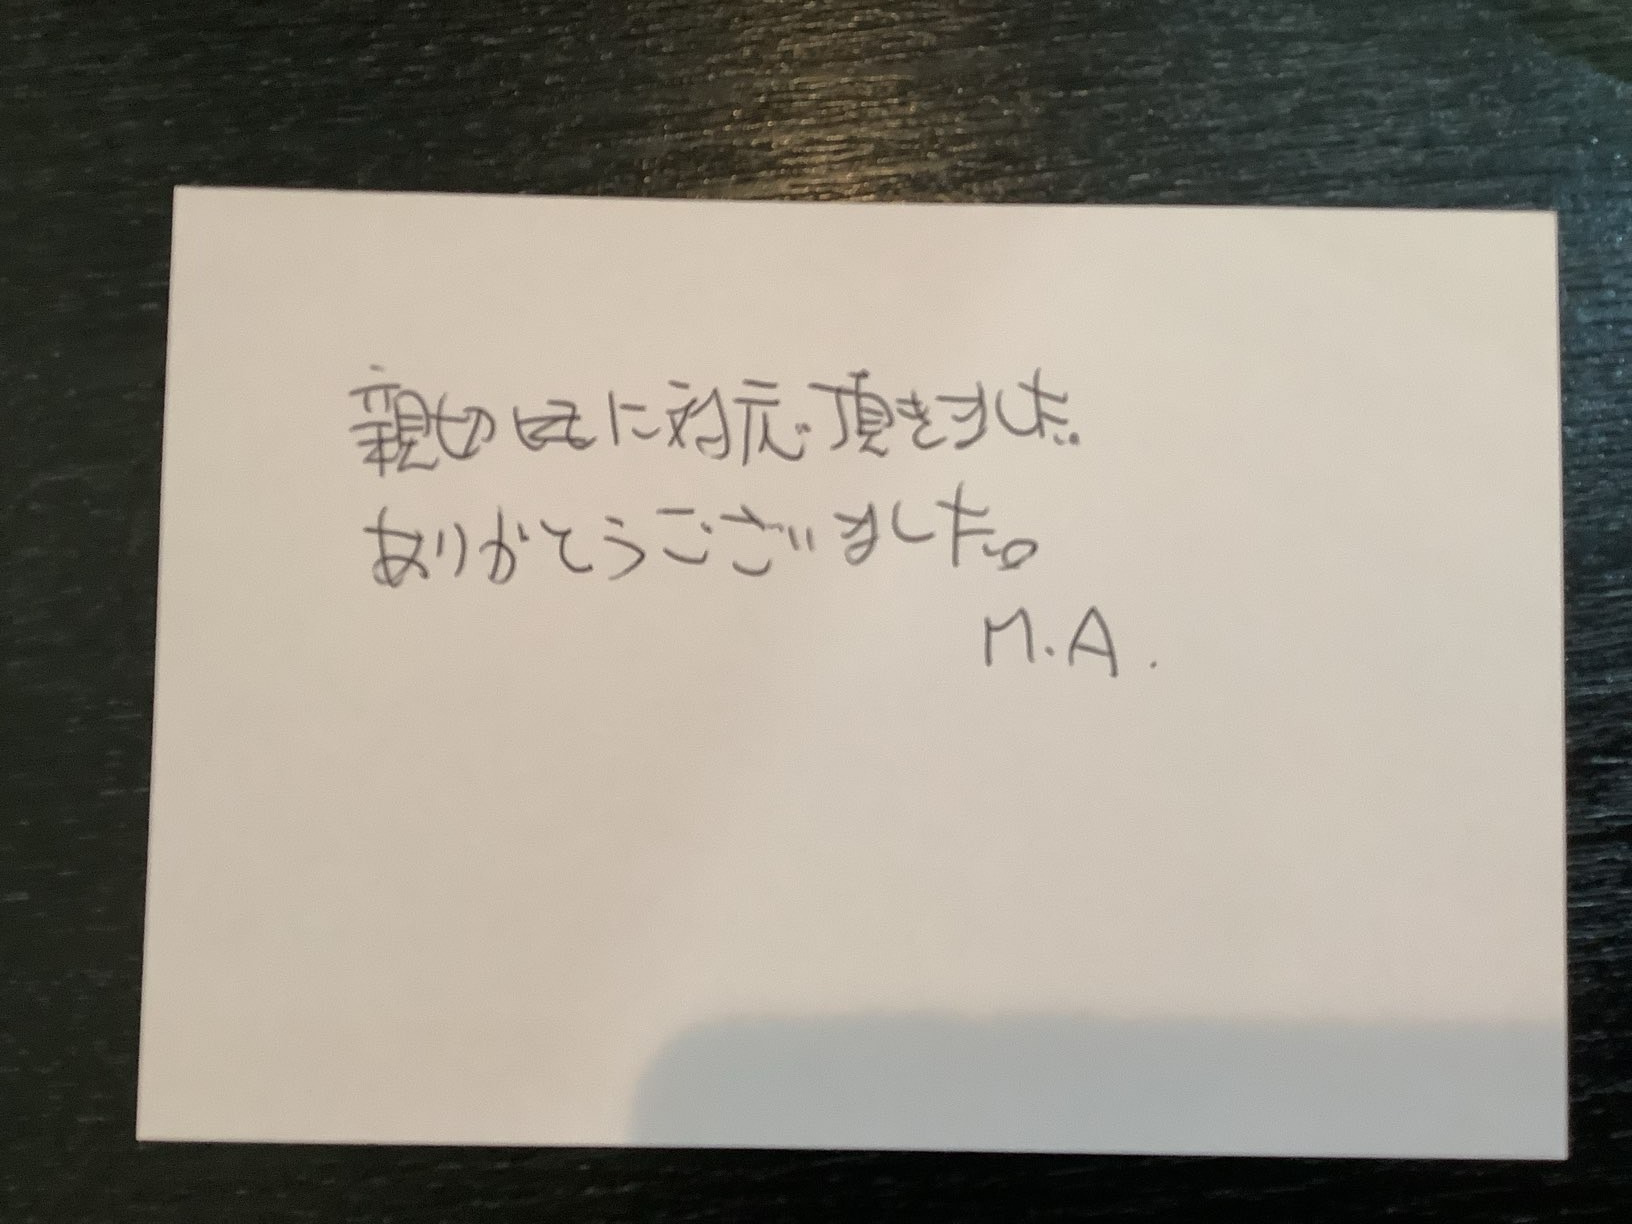 親切に対応頂きました。
ありがとうございました。
M.A.